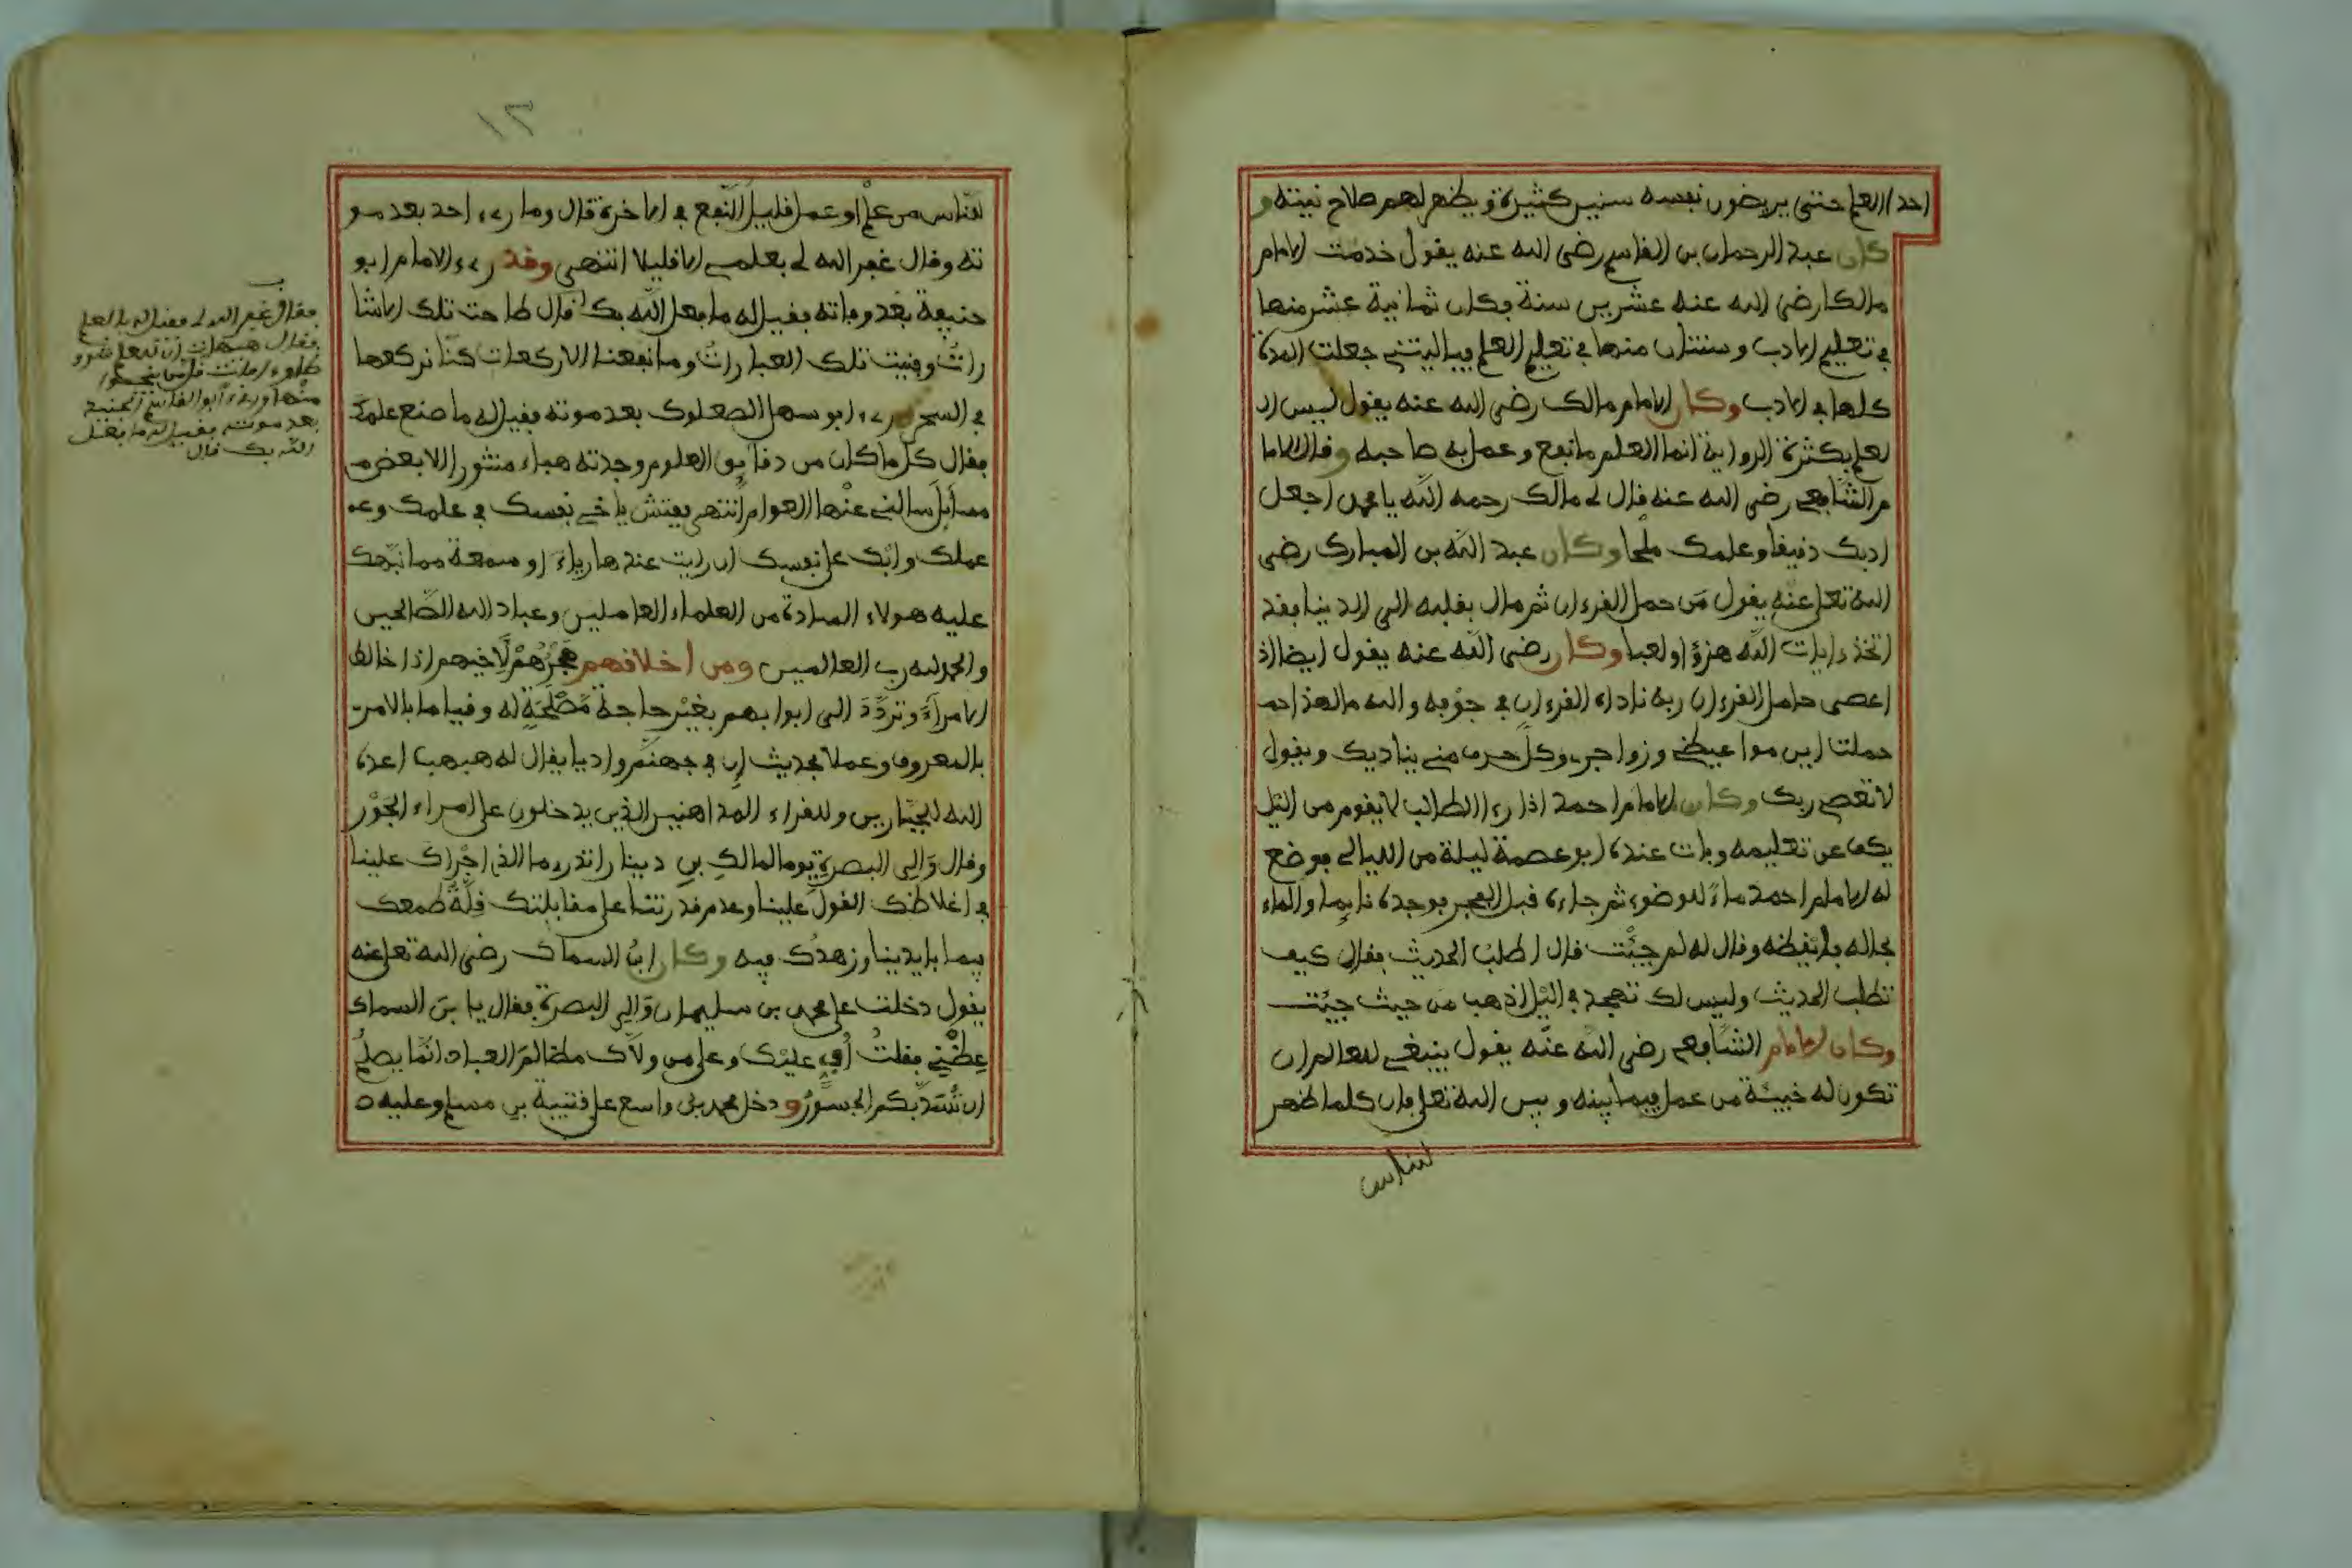 احدا العلم حتى يريضون نفسه سنين كثيرة ويظهر لهم صلاح نيته و
كان عبد الرحمان بن القاسم رضى الله عنه يقول خدمت الامام
مالكا رضى الله عنه عشرين سنة فكان ثمانية عشر منها
في تعليم الادب وسنتان منها في تعليم العلم فياليتني جعلت المدة
كلها في الادب وكان الامام مالك رضى الله عنه يقول ليس ال
لعلم بكثرة الرواية انما العلم ما نفع وعمل به صاحبه وقال الاما
م الشافعي رضى الله عنه قال لي مالك رحمه الله يا محمد اجعل
ادبك دقيقا وعلمك ملحا وكان عبد الله بن المبارك رضى
الله تعلى عنه يقول من حمل القرءان ثم مال بقلبه الى الدنيا فقد
اتخذ ءايات الله هزؤا ولعبا وكان رضى الله عنه يقول ايضا اذ
اعصى حامل القرءان ربه ناداه القرءان في جوفه والله ما لهذا حمـ
حملت اين مواعيظي وزواجرى وكل حرف مني يناديك ويقول
لا تعصي ربك وكان الامام احمد اذا رءا الطالب لا يقوم من اليل
يكف عن تعليمه وبات عنده ابو عصمة ليلة من الليالي فوضع
له الامام احمد ماء للوضوء ثم جاءه قبل الفجر فوجده نايما والماء
بحاله فايقظه وقال له لم جيئت قال اطلب الحديث فقال كيف
تطلب الحديث وليس لك تهجد في اليل اذهب من حيث جيئت
وكان الامام الشافعي رضى الله عنه يقول ينبغي للعالم ان
تكون له خبيئة من عمل فيما بينه وبين الله تعلى فان كلما ظهر
للناس
للناس من علم او عمل قليل النفع في الاخرة قال وما رءى احد بعد مو
ته وقال غفر الله لي بعلمي الا قليلا انتهى وقد رءى الامام ابو
حنيفة بعد وفاته فقيل له ما فعل الله بك قال طاحت تلك الاشا
رات وفنيت تلك العبارات وما نفعنا الا ركعات كنا نركعها
في السحر رءى ابو سهل الصعلوك بعد موته فقيل له ما صنع علمك
فقال كل ما كان من دقايق العلوم وجدته هباء منثورا الا بعض مـ
مسايل سالني عنها العوام انتهى ففتش ياخي نفسك في علمك وعـ
عملك وابك على نفسك ان رايت عندها رياء او سمعة مما نبهك
عليه هولاء السادة من العلماء العاملين وعباد الله الصالحين
والحمد لله رب العالمين ومن اخلاقهم هجرهم لاخيهم اذا خالط
الامراء وتردد الى ابوابهم بغير حاجة مصلحة له وقياما بالامر
بالمعروف وعملا بحديث ان في جهنم واديا يقال له هبهب اعده
الله للجبارين وللقراء المداهنين الذين يدخلون على امراء الجور
وقال والي البصرة يوما لمالك بن دينار اتدرى ما الذي اجراك علينا
في اغلاظك القول علينا وعدم قدرتنا على مقابلتك قلة طمعك
فيما بايدينا وزهدك فيه وكان ابن السماك رضى الله تعلى عنه
يقول دخلت على محمد بن سليمان والي البصرة فقال يا بن السماك
عظني فقلت اف عليك وعلى من ولاك مظالم العباد انما يصلح
ان تسد بكم الجسور ودخل محمد بن واسع على قتيبة بن مسلم وعليه
فقال غفر الله لي فقيل له بالعلم
فقال هيهات ان للعلم شرو
طا وءافات قل من ينجوا
منها ورءى ابو القاسم الجنيد
بعد موته فقيل له ما فعل
الله بك قال